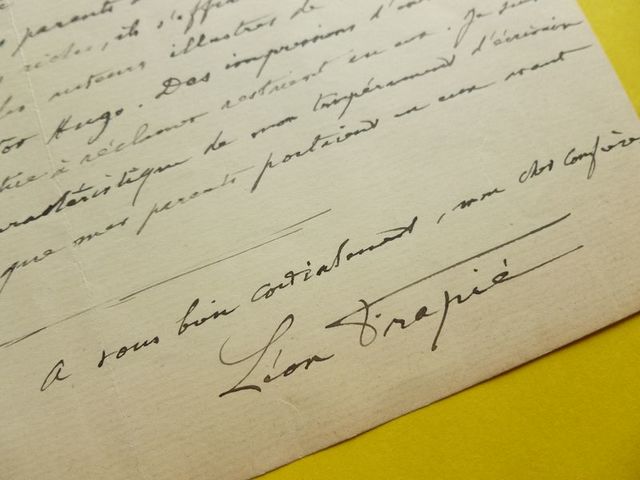 parents
riches, ils s'offr
les auteurs illustres de
tor Hugo. Des impressions d'en
à réclamer restaient en eux. Je suis
caractéristique de mon tempérament d'écrivain
que mes parents portaient en eux avant
A vous bien cordialement, mon cher confrère
Léon Frapié